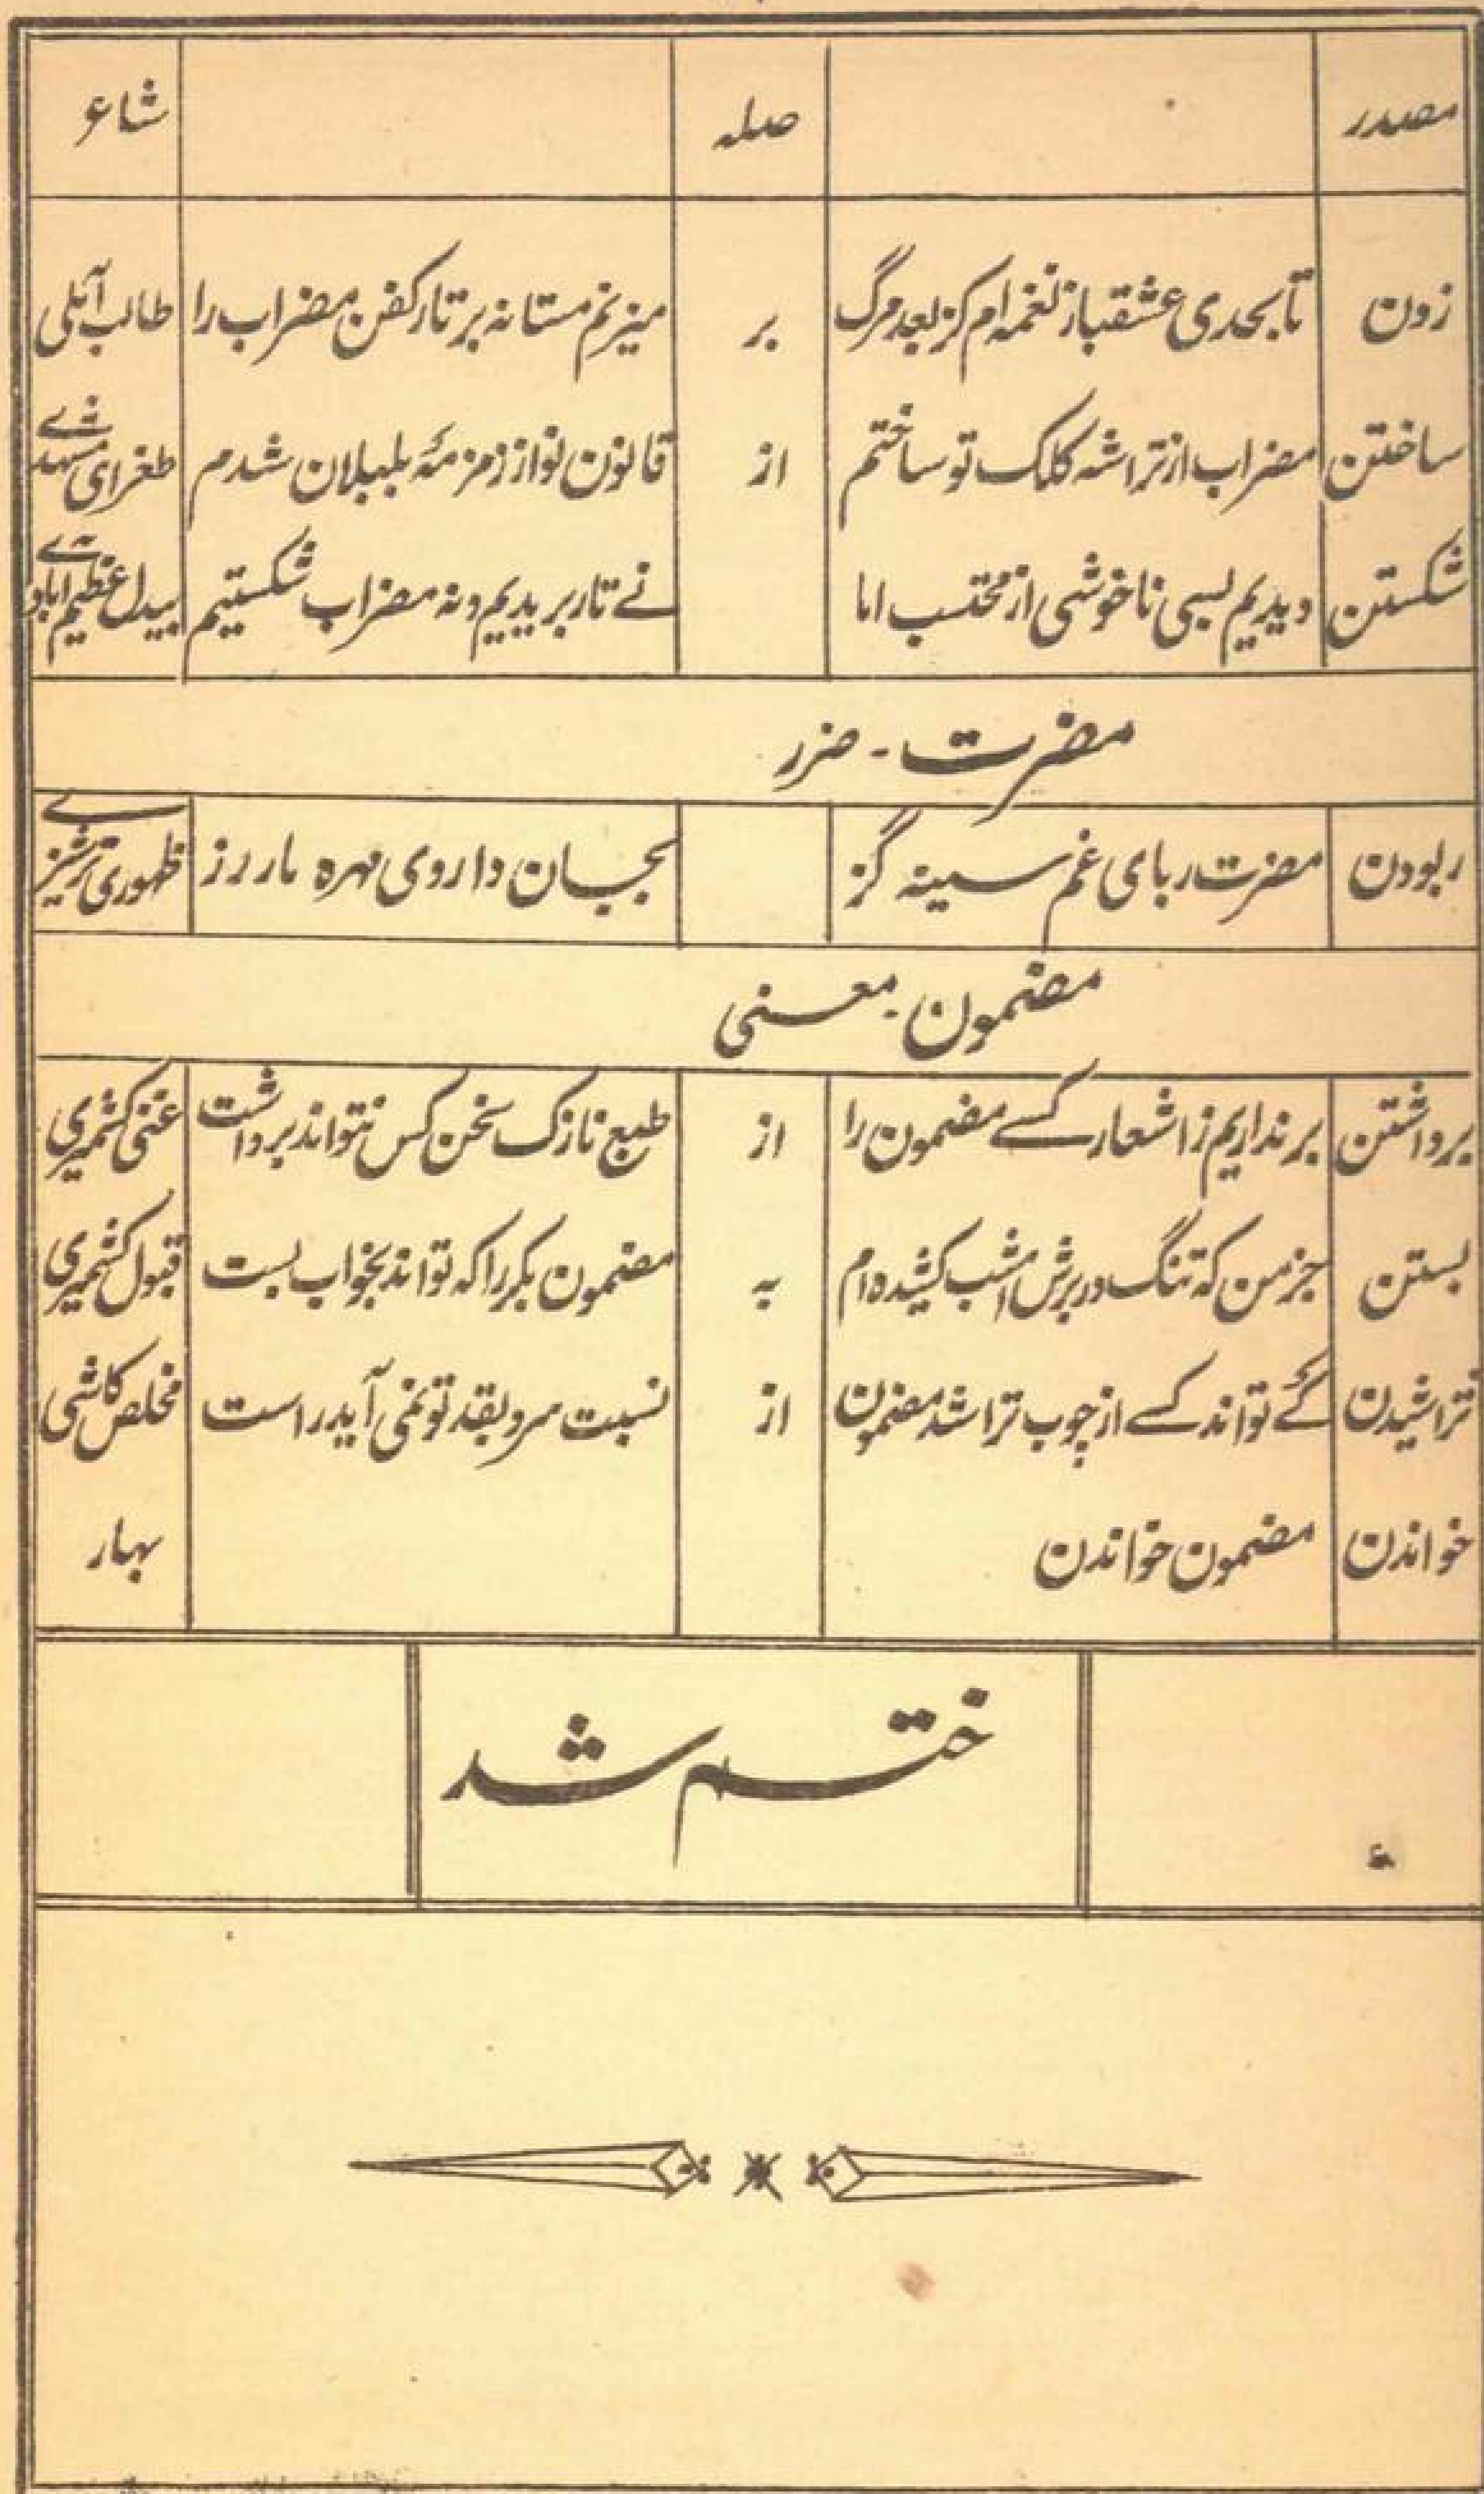 مصدر صله شاعر
زدن تا بحدی عشقباز نغمه ام کز بعد مرگ بر میزنم مستانه بر تار کفن مضراب را طالب آملی
ساختن مضراب از تراشه کلک تو ساختم از قانون نواز زمزمهٔ بلبلان شدم طغرای مشهدے
شکستن دیدیم بسی ناخوشی از محتسب اما نے تار بریدیم و نه مضراب شکستیم بیدل عظیم آبادے
مضرت - ضرر
ربودن مضرت ربای غم سینه گز بجسان داروی مهره مار رز ظهوری ترشیزے
مضمون - معنی
برداشتن برنداریم ز اشعار کسے مضمون را از طبع نازک سخن کس نتواند برداشت غنی کشمیری
بستن جز من که تنگ در برش امشب کشیده ام به مضمون بکر را که تواند بخواب بست قبول کشمیری
تراشیدن کے تواند کسے از چوب تراشد مضمون از نسبت سرو بقد تو نمی آید راست مخلص کاشی
خواندن مضمون خواندن بهار
ختم شد